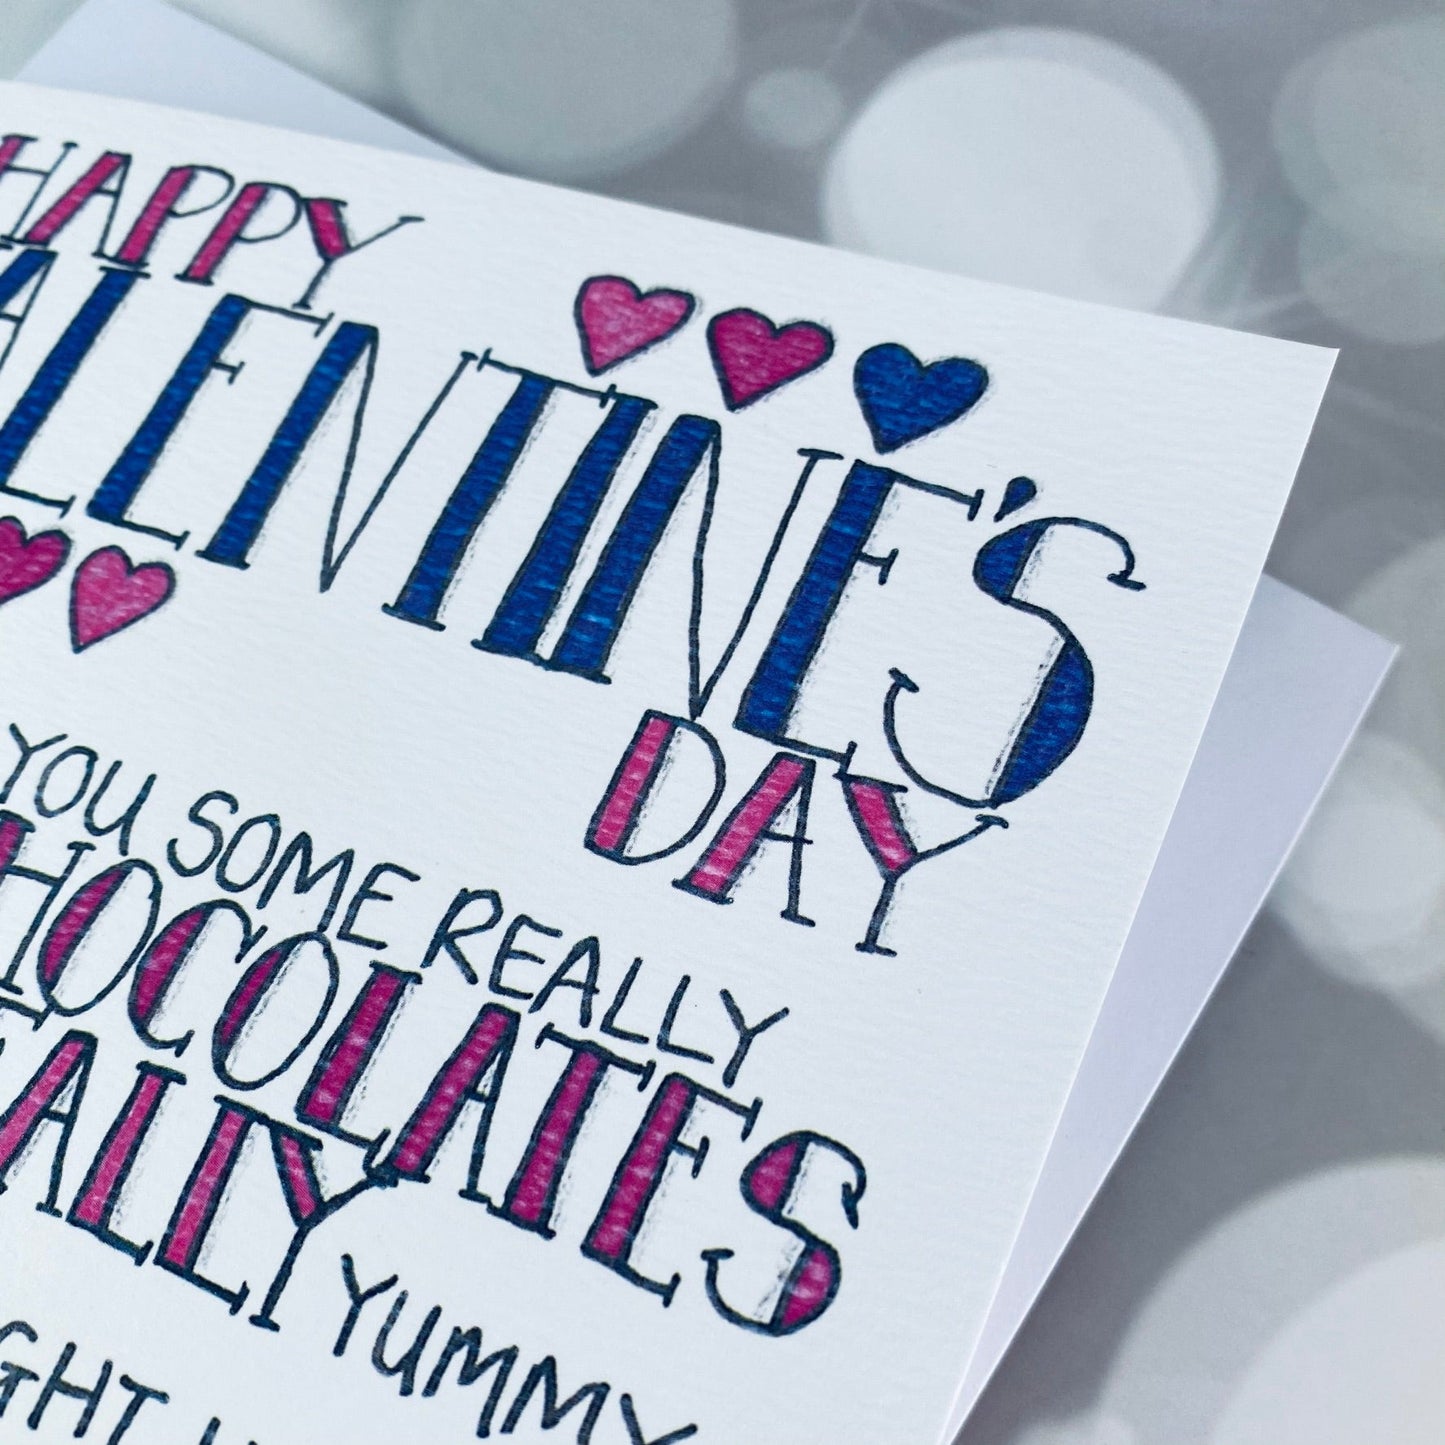 HAPPY
VALENTINE'S
DAY
YOU SOME REALLY
CHOCOLATES
YUMMY